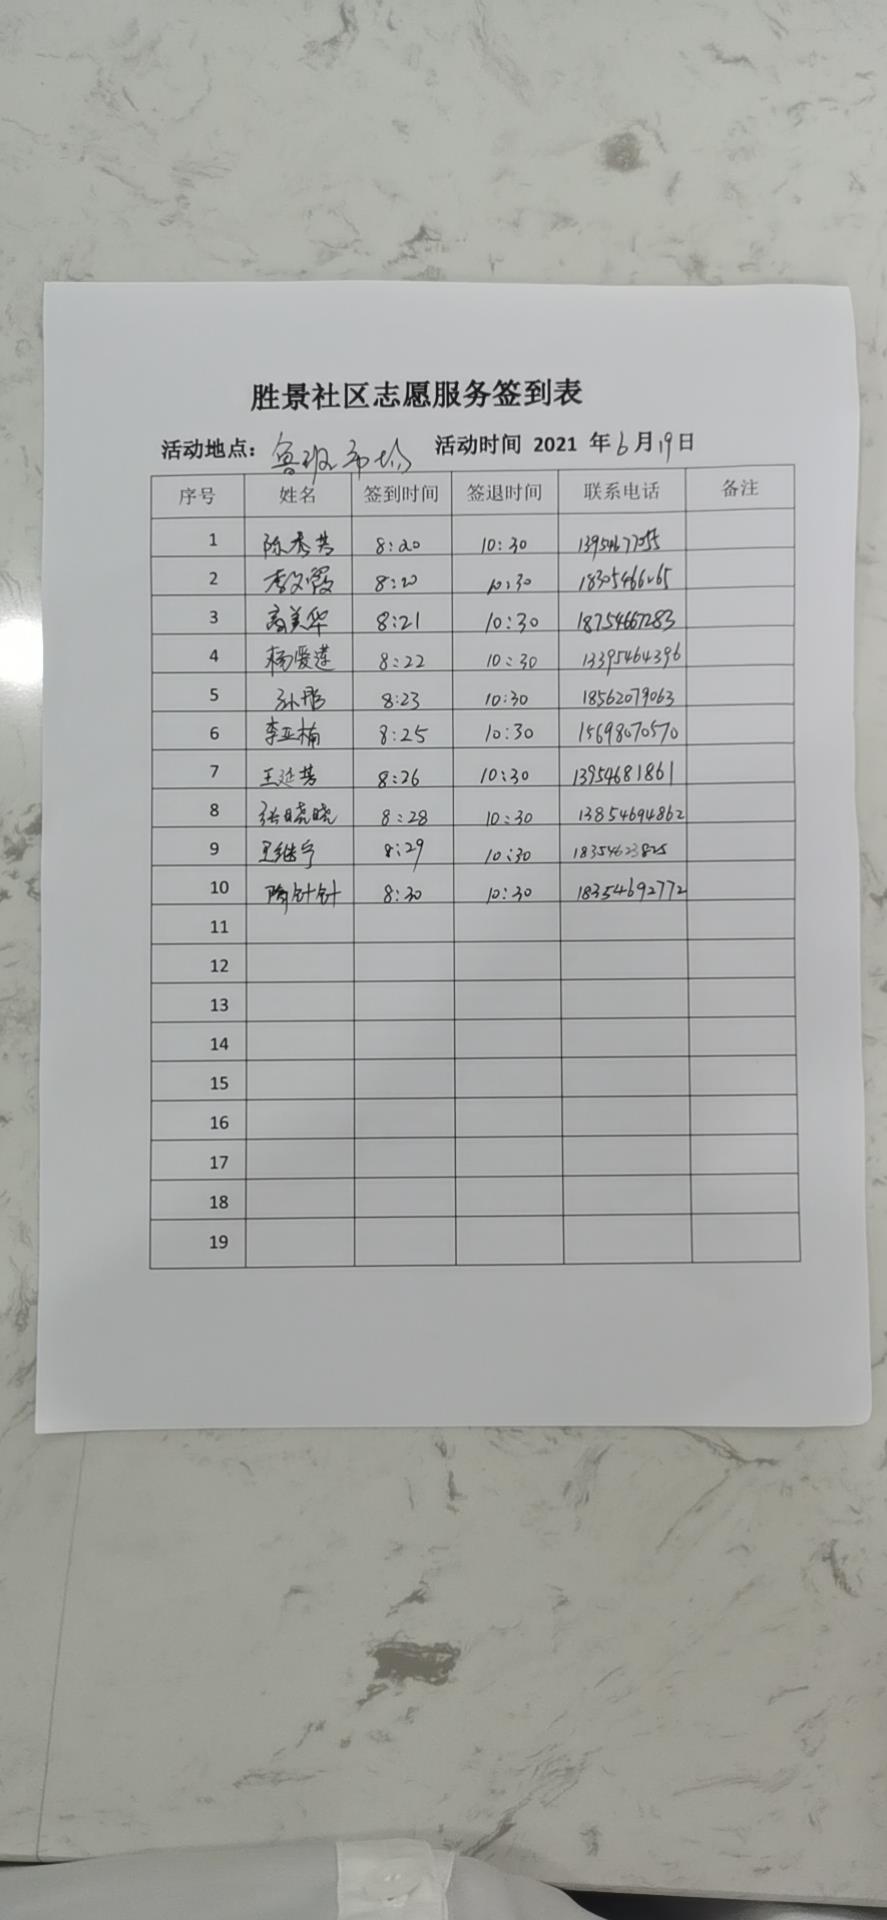 胜景社区志愿服务签到表
活动地点: 鲁班市场 活动时间 2021 年 6 月 19 日
序号 姓名 签到时间 签退时间 联系电话 备注
1 陈秀芳 8:20 10:30
2 李文霞 8:20 10:30
3 高美华 8:21 10:30 18754667283
4 杨爱莲 8:22 10:30 13395464396
5 8:23 10:30 18562079063
6 李亚楠 8:25 10:30 15698070570
7 王延芳 8:26 10:30 13954681861
8 张晓晓 8:28 10:30 13854694862
9 王继宁 8:29 10:30 18354623825
10 陶针针 8:30 10:30 18354692772
11
12
13
14
15
16
17
18
19